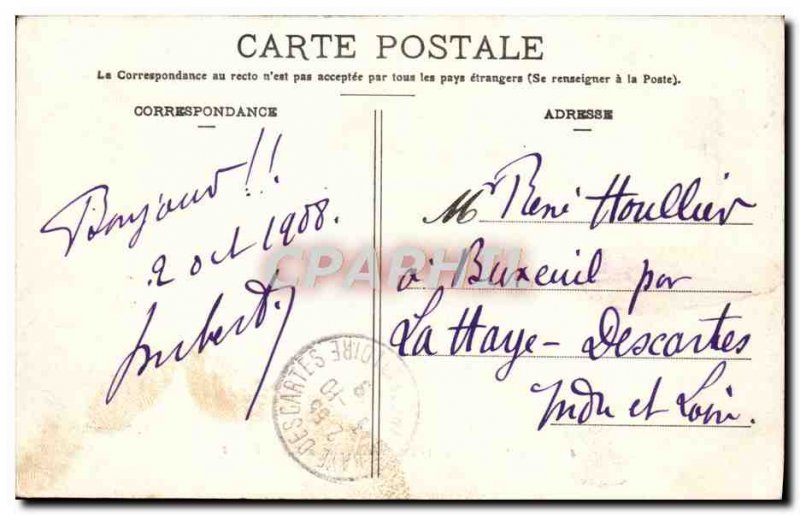 CARTE POSTALE
La Correspondance au recto n'est pas acceptée par tous les pays étrangers (Se renseigner à la Poste).
CORRESPONDANCE
Bonjour!!
2 oct 1908.
ADRESSE
Mr René Houllier
à Buxeuil par
La Haye-Descartes
Indre et Loire.
CPARHTI
HAYE-DESCARTES
LOIRE
3 -10